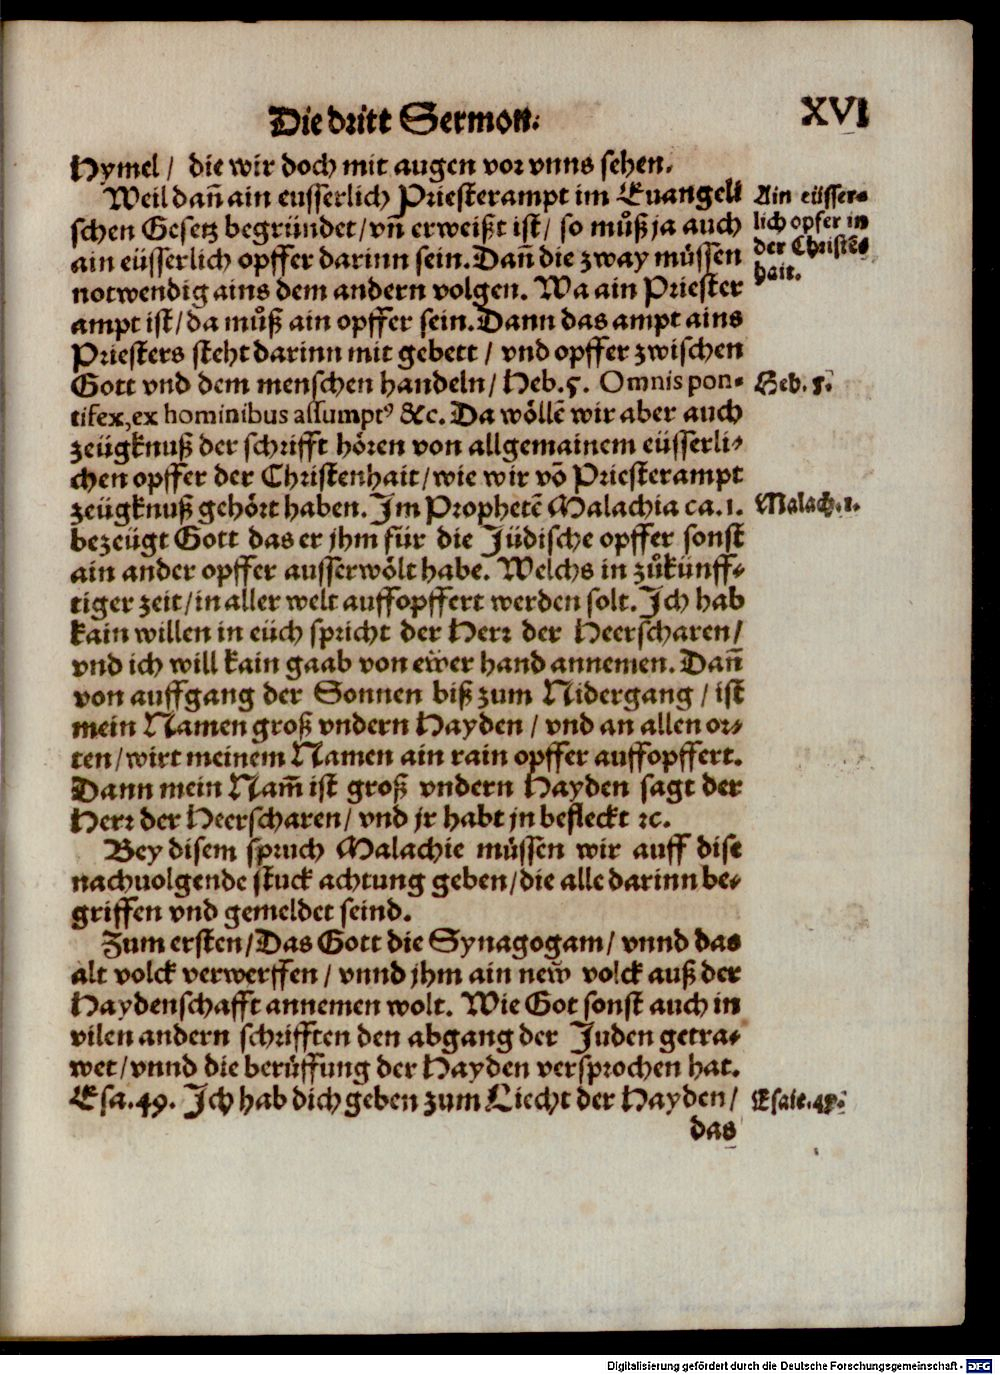 Die dritt Sermon.
XVI
Hymel / die wir doch mit augen vor vnns sehen.
Weil dañ ain eusserlich Priesterampt im Euangeli
schen Gesetz begründet / vñ erweißt ist / so můß ja auch
ain eüsserlich opffer darinn sein. Dañ die zway müssen
notwendig ains dem andern volgen. Wa ain Priester
ampt ist / da můß ain opffer sein. Dann das ampt ains
Priesters steht darinn mit gebett / vnd opffer zwischen
Gott vnd dem menschen handeln / Heb. 5. Omnis pon-
tifex, ex hominibus assumptꝰ &c. Da wöllẽ wir aber auch
zeügknuß der schrifft hören von allgemainem eüsserli-
chen opffer der Christenhait / wie wir võ Priesterampt
zeügknuß gehört haben. Im Prophetẽ Malachia ca. 1.
bezeügt Gott das er jhm für die Jüdische opffer sonst
ain ander opffer ausserwölt habe. Welchs in zůkünff-
tiger zeit / in aller welt auffopffert werden solt. Ich hab
kain willen in eüch spricht der Herr der Heerscharen /
vnd ich will kain gaab von ewer hand annemen. Dañ
von auffgang der Sonnen biß zum Nidergang / ist
mein Namen groß vndern Hayden / vnd an allen or-
ten / wirt meinem Namen ain rain opffer auffopffert.
Dann mein Nam̃ ist groß vndern Hayden sagt der
Herr der Heerscharen / vnd jr habt jn befleckt ꝛc.
Bey disem spruch Malachie müssen wir auff dise
nachuolgende stuck achtung geben / die alle darinn be-
griffen vnd gemeldet seind.
Zum ersten / Das Gott die Synagogam / vnnd das
alt volck verwerffen / vnnd jhm ain new volck auß der
Haydenschafft annemen wolt. Wie Got sonst auch in
vilen andern schrifften den abgang der Juden getra-
wet / vnnd die berüffung der Hayden versprochen hat.
Esa. 49. Ich hab dich geben zum Liecht der Hayden /
das
Ain eüsser-
lich opfer in
der Christẽ-
hait.
Heb. 5.
Malach. 1.
Esaie. 49.
Digitalisierung gefördert durch die Deutsche Forschungsgemeinschaft - DFG